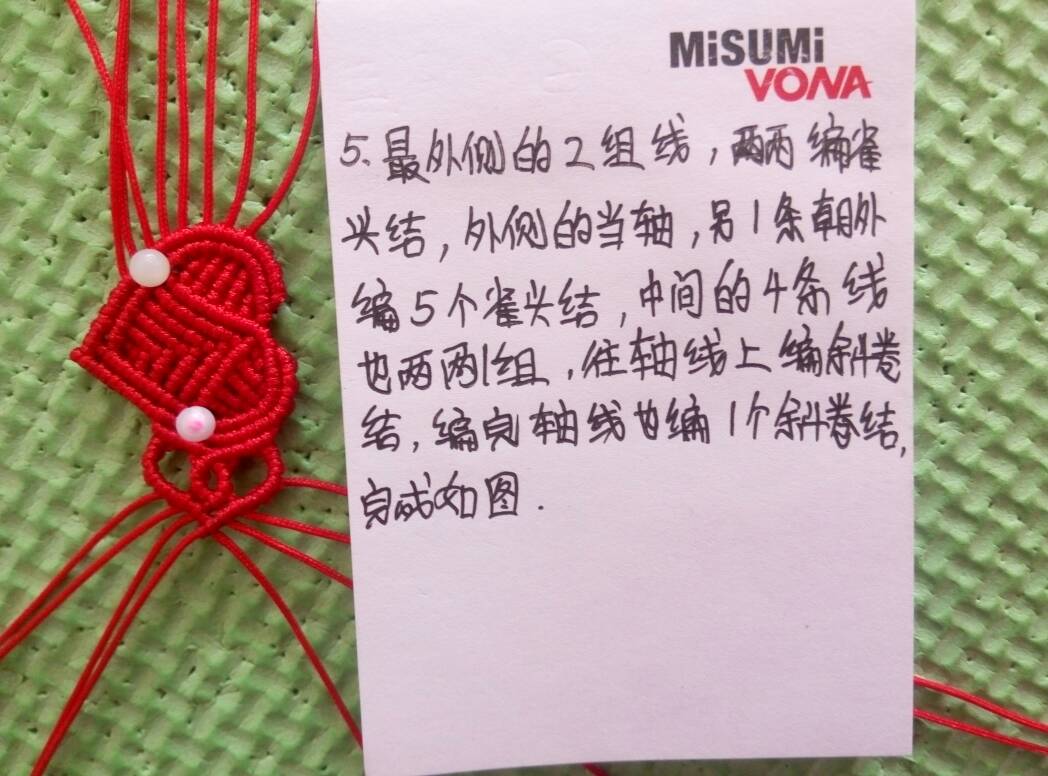 MiSUMi
VONA
5. 最外侧的2组线，两两编雀
头结，外侧的当轴，另1条朝外
编5个雀头结，中间的4条线
也两两1组，往轴线上编斜卷
结，编完轴线也编1个斜卷结，
完成如图.